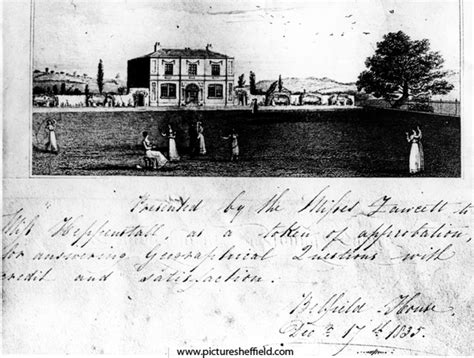 Presented by the Misses Fawcett to
Miss Heppenstall, as a token of approbation,
for answering Geographical Questions with
credit and satisfaction.
Belfield House.
Dec 17th 1835.
www.picturesheffield.com